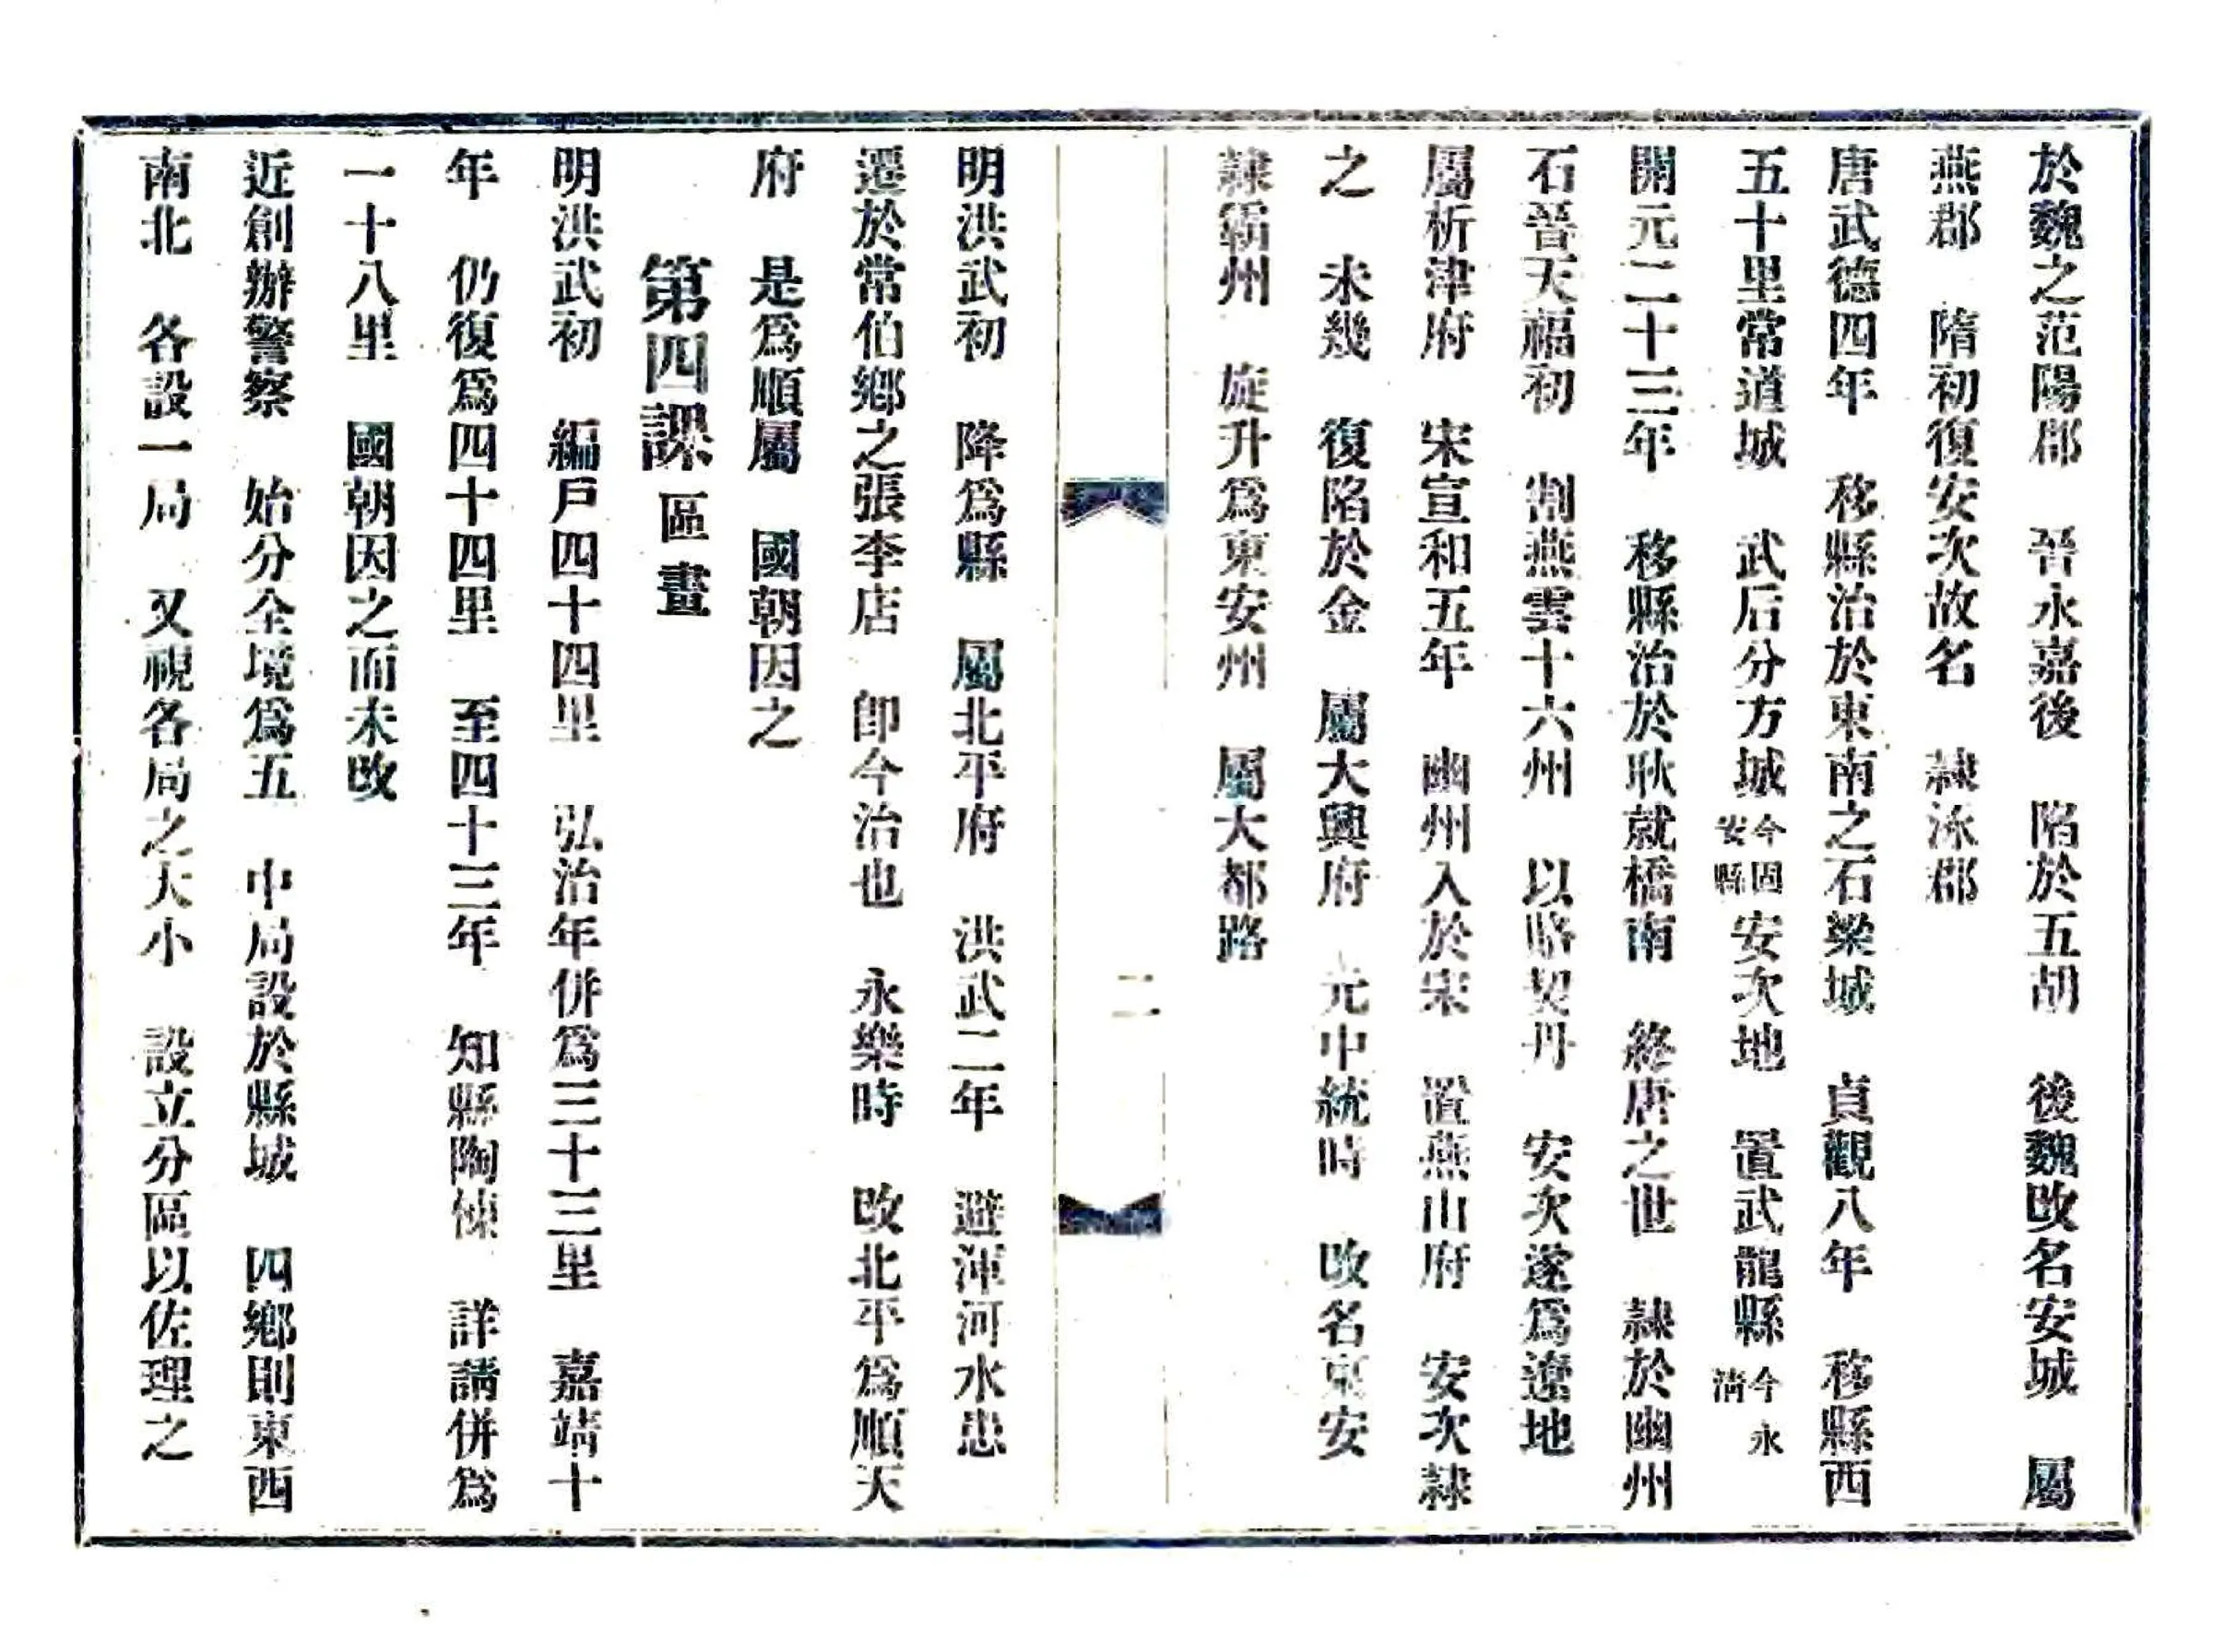 於魏之范陽郡　晉永嘉後　陷於五胡　後魏改名安城　屬
燕郡　隋初復安次故名　隸涿郡
唐武德四年　移縣治於東南之石梁城　貞觀八年　移縣西
五十里常道城　武后分方城今固安縣安次地　置武龍縣今永清
開元二十三年　移縣治於耿就橋南　終唐之世　隸於幽州
石晉天福初　割燕雲十六州　以賂契丹　安次遂爲遼地
屬析津府　宋宣和五年　幽州入於宋　置燕山府　安次隸
之　未幾　復陷於金　屬大興府　元中統時　改名東安
隸霸州　旋升爲東安州　屬大都路
二
明洪武初　降爲縣　屬北平府　洪武二年　避渾河水患
遷於常伯鄉之張李店　卽今治也　永樂時　改北平爲順天
府　是爲順屬　國朝因之
第四課 區畫
明洪武初　編戶四十四里　弘治年併爲三十三里　嘉靖十
年　仍復爲四十四里　至四十三年　知縣陶　詳請併爲
一十八里　國朝因之而未改
近創辦警察　始分全境爲五　中局設於縣城　四鄉則東西
南北　各設一局　又視各局之大小　設立分區以佐理之